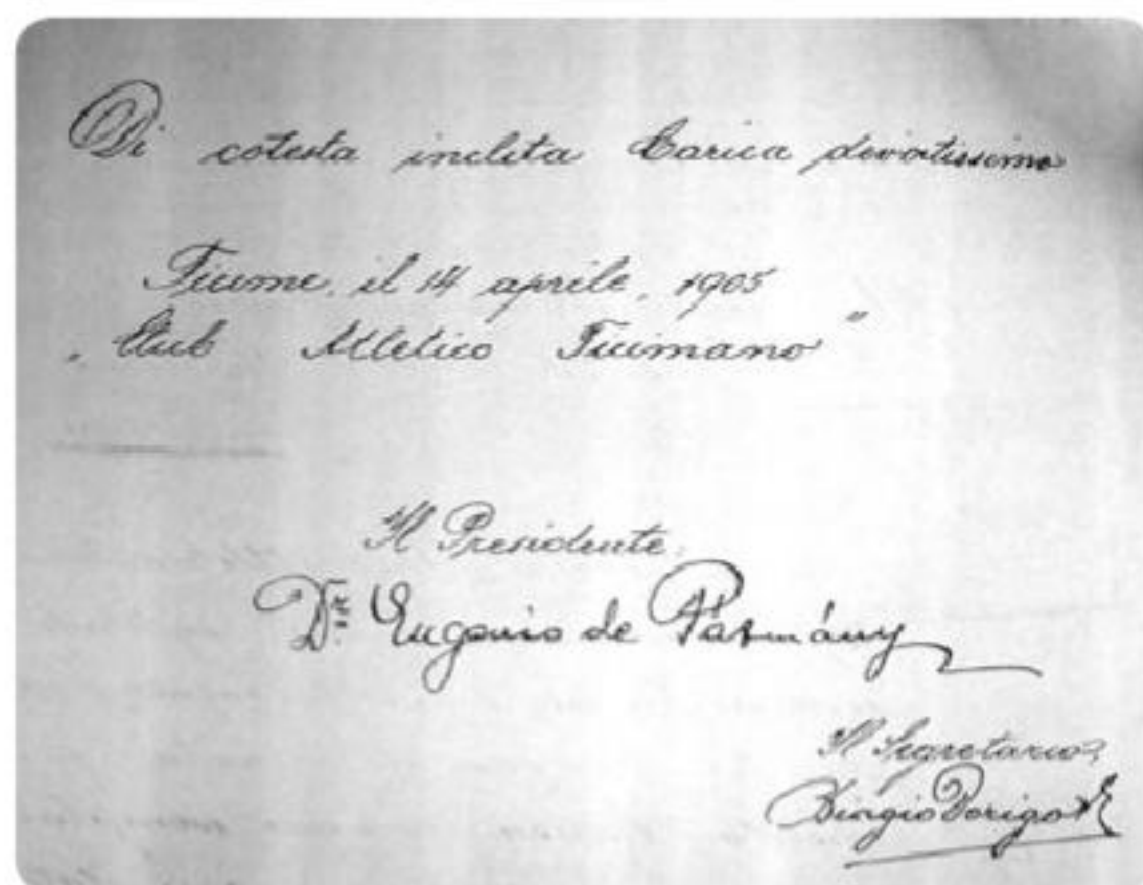 Di cotesta inclita Carica devotissimo
Fiume, il 14 aprile, 1905
„Club Atletico Fiumano”
Il Presidente:
Dr. Eugenio de Pázmány
Il Segretario:
Biagio Dorigo